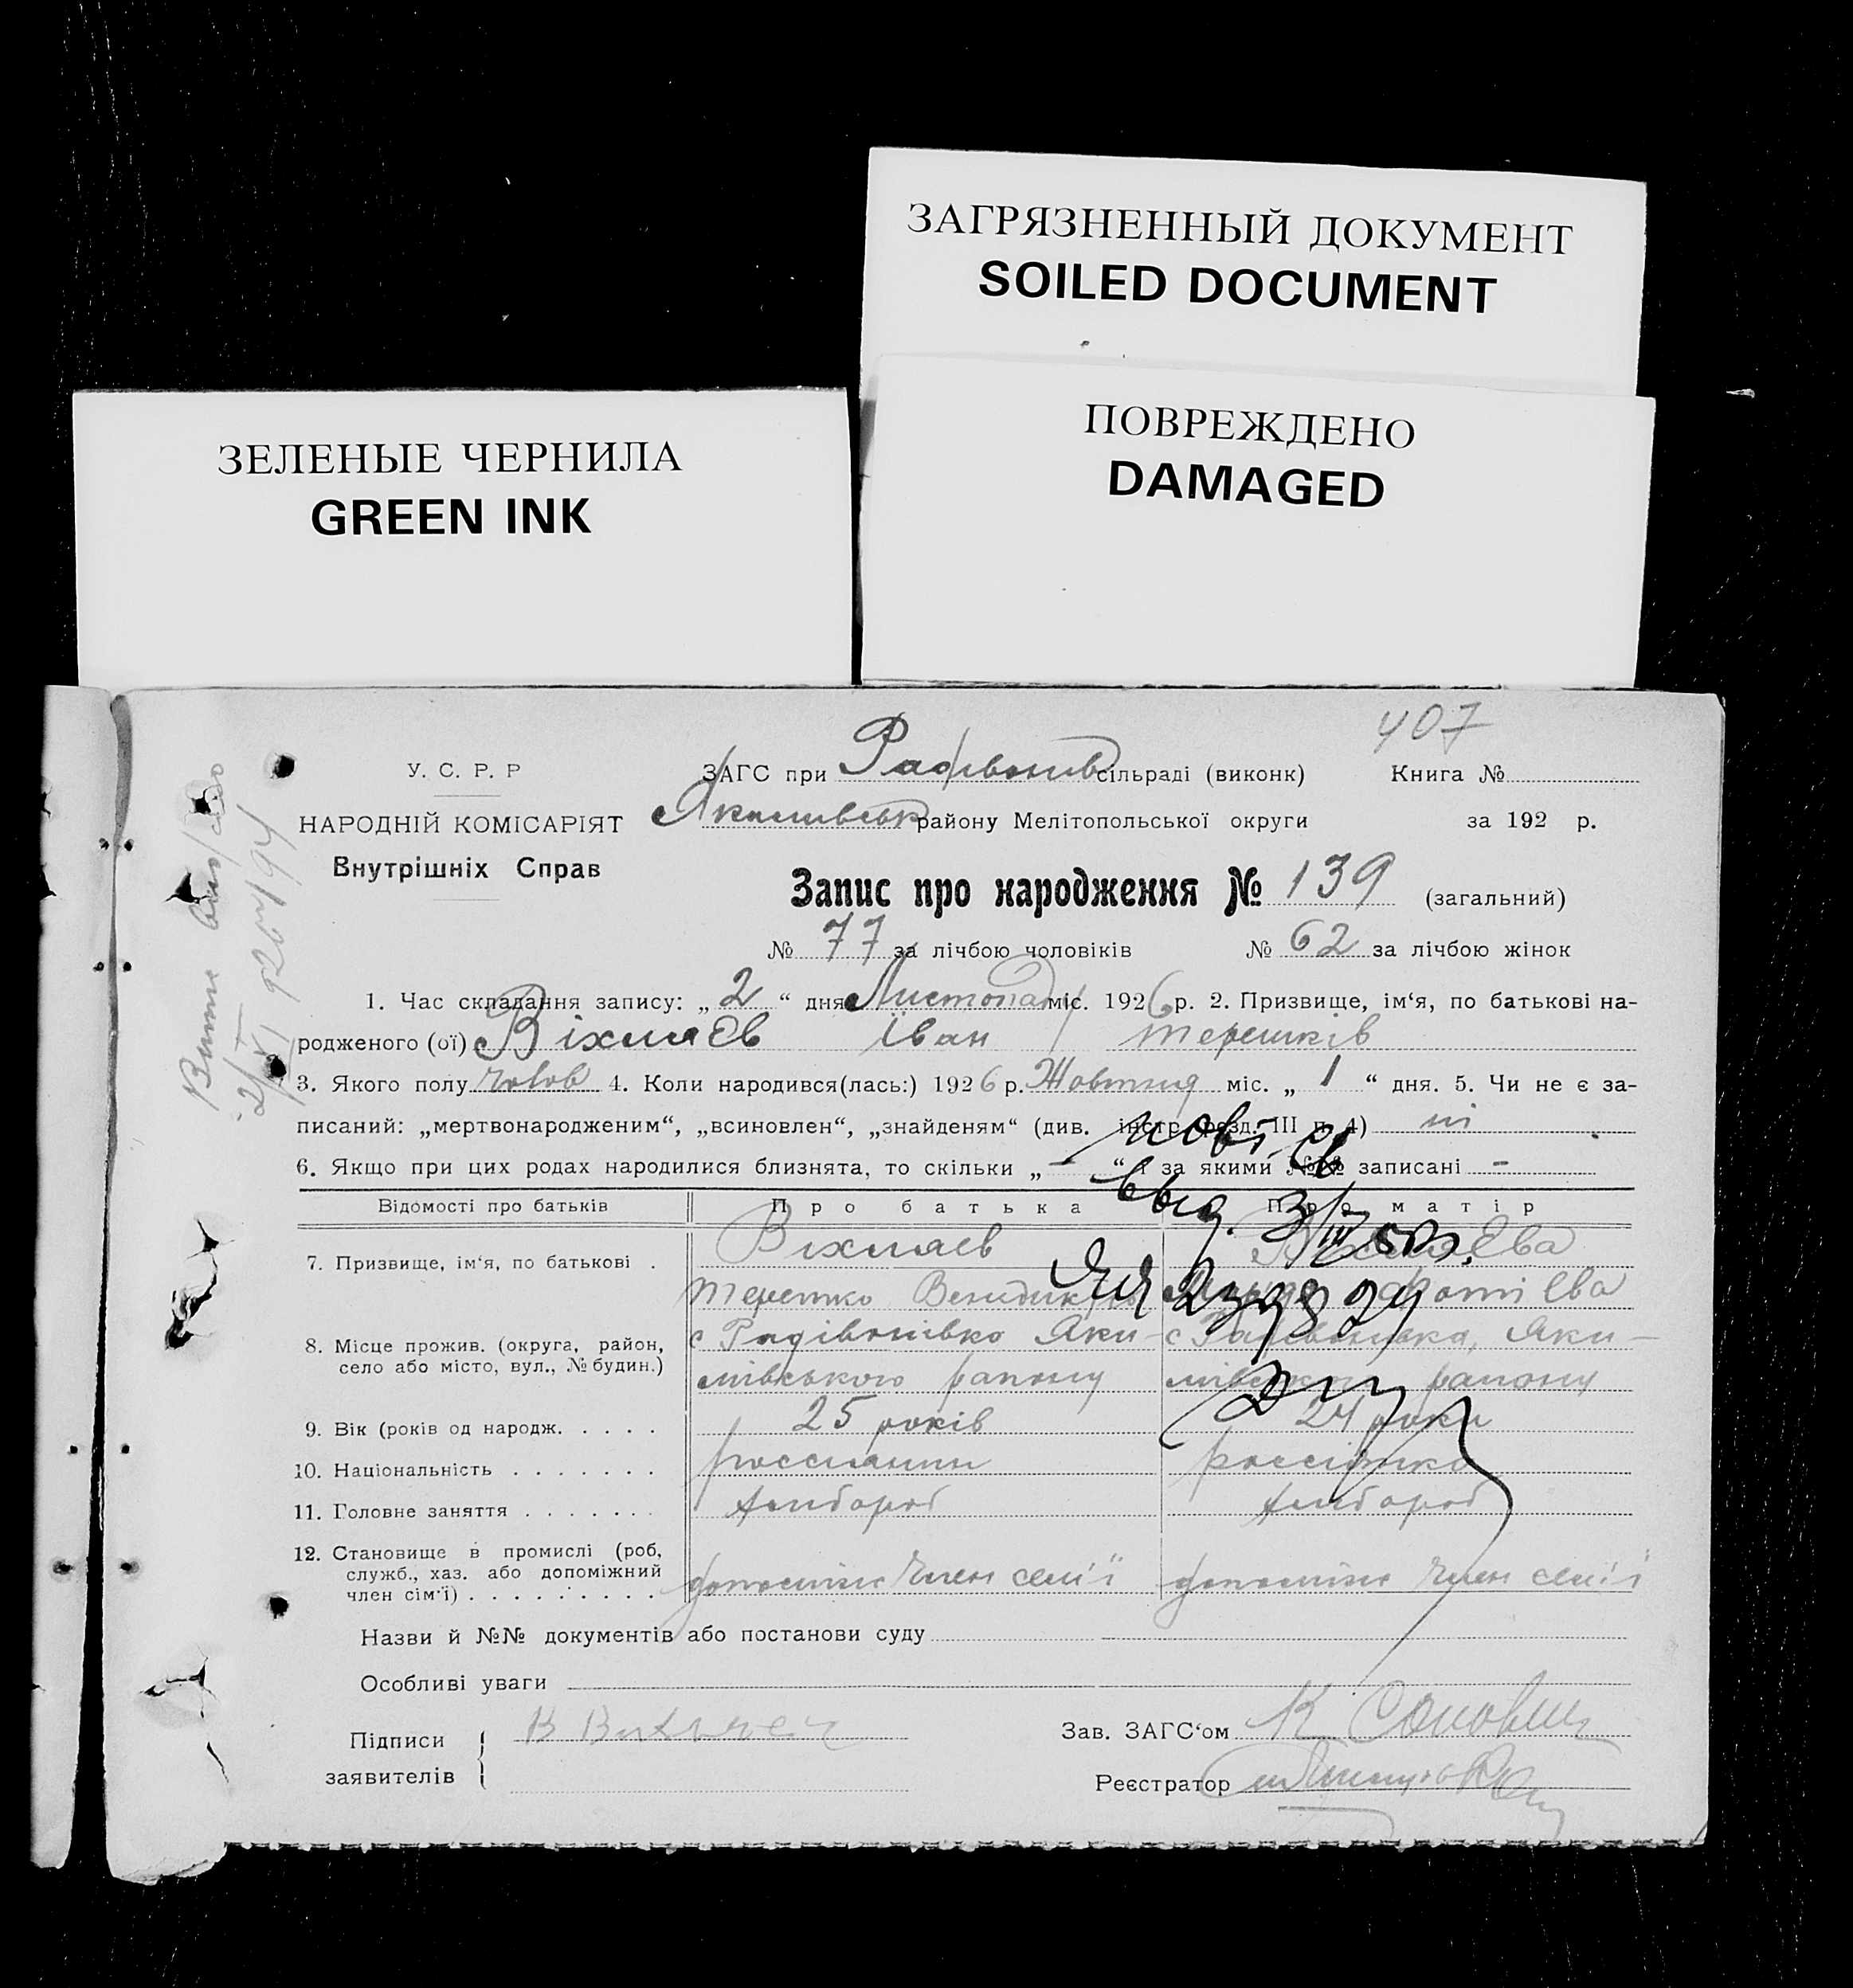 ЗАГРЯЗНЕННЫЙ ДОКУМЕНТ
SOILED DOCUMENT
ПОВРЕЖДЕНО
DAMAGED
ЗЕЛЕНЫЕ ЧЕРНИЛА
GREEN INK
407
У. С. Р. Р
ЗАГС при Радівонів сільраді (виконк) Книга №
НАРОДНІЙ КОМІСАРІЯТ
Якимівськ району Мелітопольської округи за 192 р.
Внутрішніх Справ
Запис про народження № 139 (загальний)
№ 77 за лічбою чоловіків № 62 за лічбою жінок
1. Час складання запису: „ 2 “ дня Листопад міс. 1926 р. 2. Призвище, ім‘я, по батькові на-
родженого (ої) Віхляєв Іван Терешків
3. Якого полу чолов 4. Коли народився(лась:) 1926 р. Жовтня міс. „ 1 “ дня. 5. Чи не є за-
писаний: „мертвонародженим“, „всиновлен“, „знайденям“ (див. інстр. розд. III п. 4) ні
6. Якщо при цих родах народилися близнята, то скільки „ – “ і за якими №№ записані –
Відомості про батьків Про батька Про матір
7. Призвище, ім‘я, по батькові . Віхляєв
Терешко
8. Місце прожив. (округа, район, с Радівонівко Яки- с Радівонівка, Яки-
село або місто, вул., № будин.) мівського району району
9. Вік (років од народж. . . . . 25 років 24 роки
10. Національність . . . . . . . россіянин россіянка
11. Головне заняття . . . . . . . хлібороб хлібороб
12. Становище в промислі (роб,
служб., хаз. або допоміжний
член сім‘ї) . . . . . . . . . допоміжн член семії допоміжн член семії
Назви й №№ документів або постанови суду
Особливі уваги
Підписи
заявителів
Зав. ЗАГС‘ом К
Реєстратор